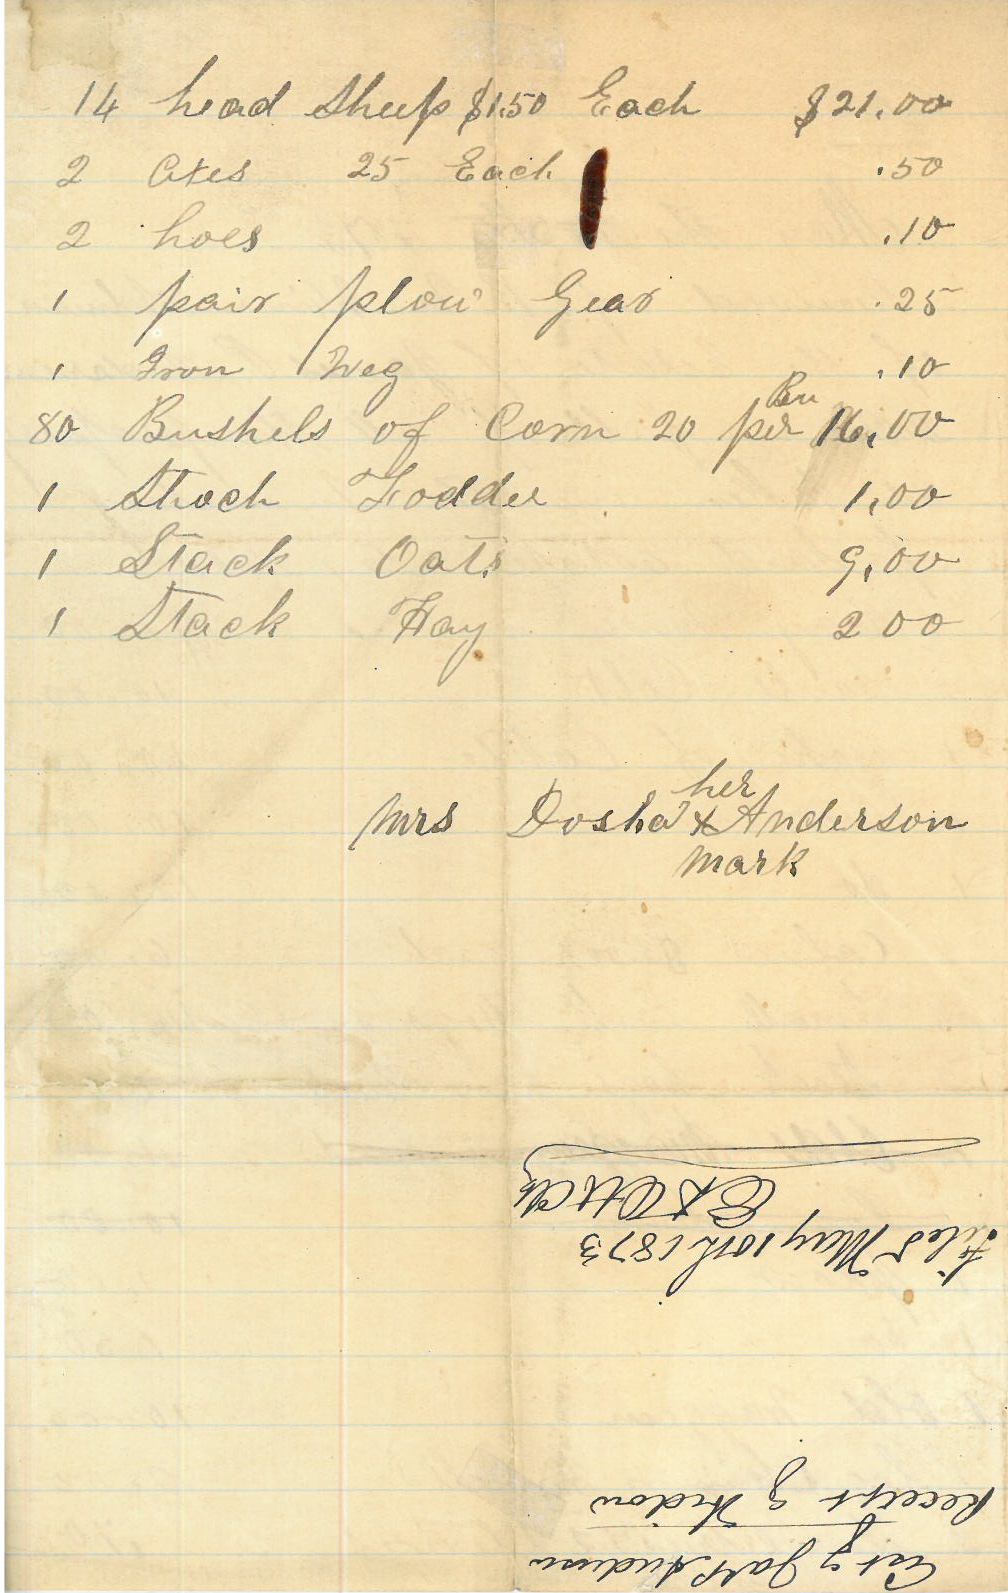 14 head Sheep $1.50 Each $21.00
2 Axes 25 Each .50
2 hoes .10
1 pair plow Gear .25
1 Iron Weg .10
80 Bushels of Corn 20 per Bu 16.00
1 Shock Fodder 1.00
1 Stack Oats 9.00
1 Stack Hay 2 00
her
Mrs Dosha X Anderson
mark
Est of Anderson
Receipt of Widow
Filed May 10th 1873